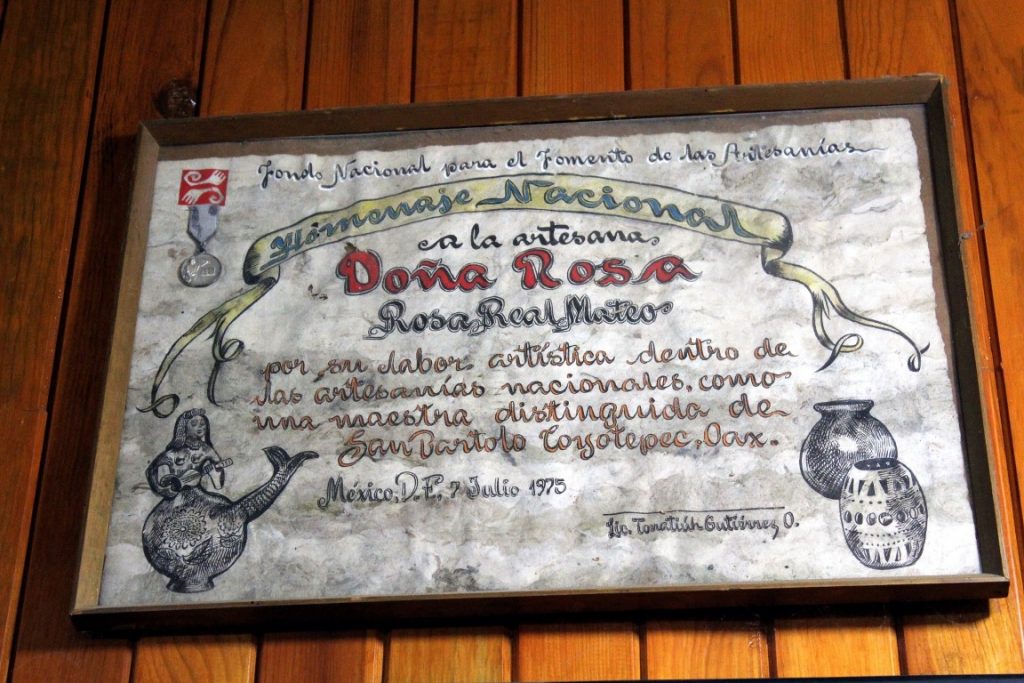 Fondo Nacional para el Fomento de las Artesanías
Homenaje Nacional
a la artesana
Doña Rosa
Rosa Real Mateo
por su labor artística dentro de
las artesanías nacionales, como
una maestra distinguida de
San Bartolo Coyotepec, Oax.
México, D.F., 7 Julio 1975
Lic. Tonatiúh Gutiérrez O.